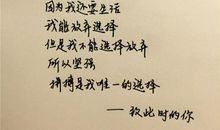 因为我还要生活
我能放弃选择
但是我不能选择放弃
所以坚强
拼搏是我唯一的选择
——致此时的你